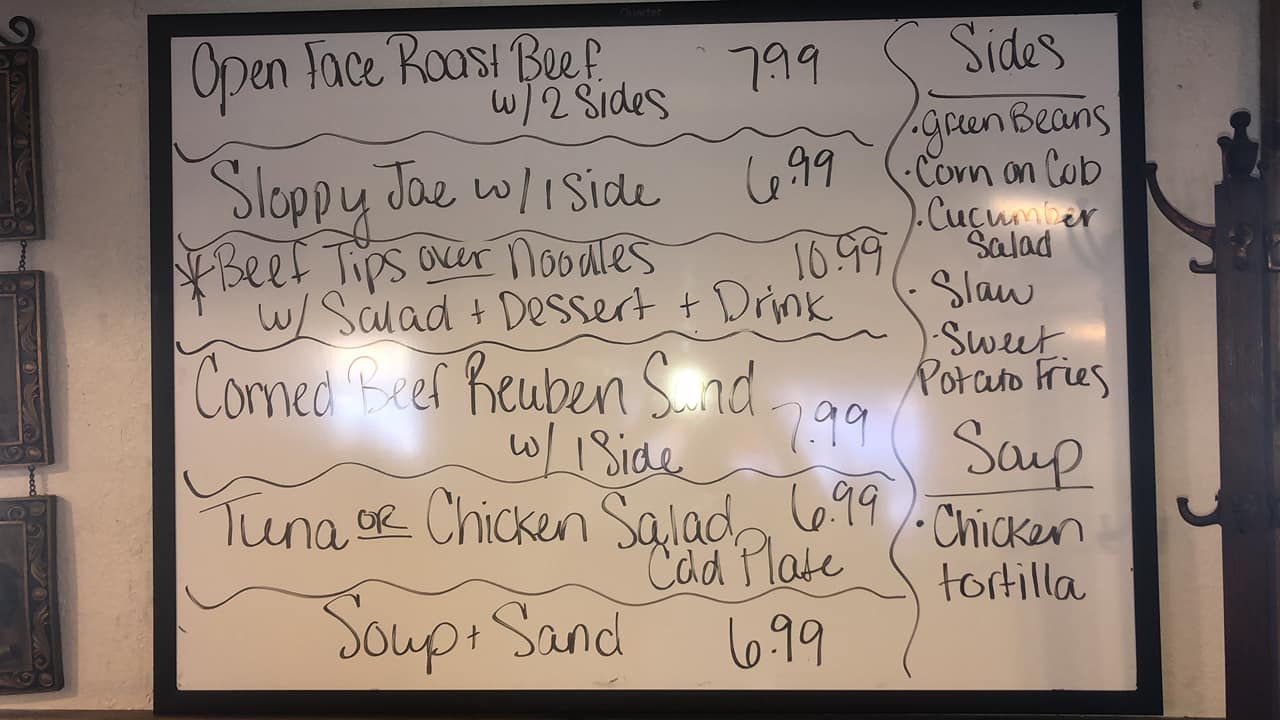 Quartet
Open Face Roast Beef 7.99
w/ 2 Sides
Sloppy Joe w/ 1 Side 6.99
*Beef Tips over Noodles 10.99
w/ Salad + Dessert + Drink
Corned Beef Reuben Sand
w/ 1 Side 7.99
Tuna OR Chicken Salad 6.99
Cold Plate
Soup + Sand 6.99
Sides
• Green Beans
• Corn on Cob
• Cucumber
Salad
• Slaw
• Sweet
Potato Fries
Soup
• Chicken
tortilla